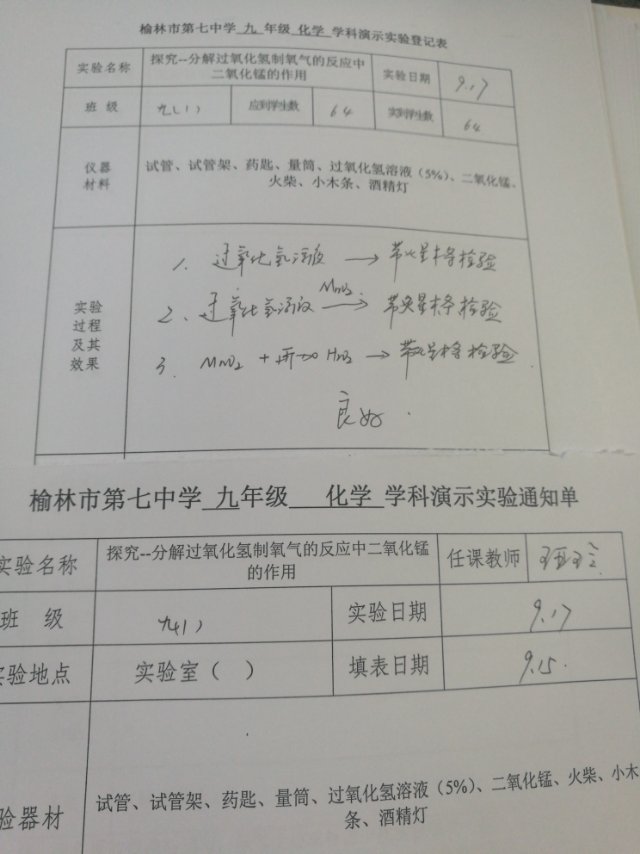 榆林市第七中学 九 年级 化学 学科演示实验登记表
实验名称 探究--分解过氧化氢制氧气的反应中二氧化锰的作用 实验日期 9.17
班 级 九(1) 应到学生数 64 实到学生数 64
仪器材料 试管、试管架、药匙、量筒、过氧化氢溶液（5%）、二氧化锰、
火柴、小木条、酒精灯
实验过程及其效果
1. 过氧化氢溶液 → 带火星木条检验
2、过氧化氢溶液 MnO2 → 带火星木条检验
3. MnO2 + 再加 H2O2 → 带火星木条检验
良好.
榆林市第七中学 九年级 化学 学科演示实验通知单
实验名称 探究--分解过氧化氢制氧气的反应中二氧化锰
的作用 任课教师
班 级 九(1) 实验日期 9.17
实验地点 实验室（ ） 填表日期 9.15.
验器材 试管、试管架、药匙、量筒、过氧化氢溶液（5%）、二氧化锰、火柴、小木
条、酒精灯